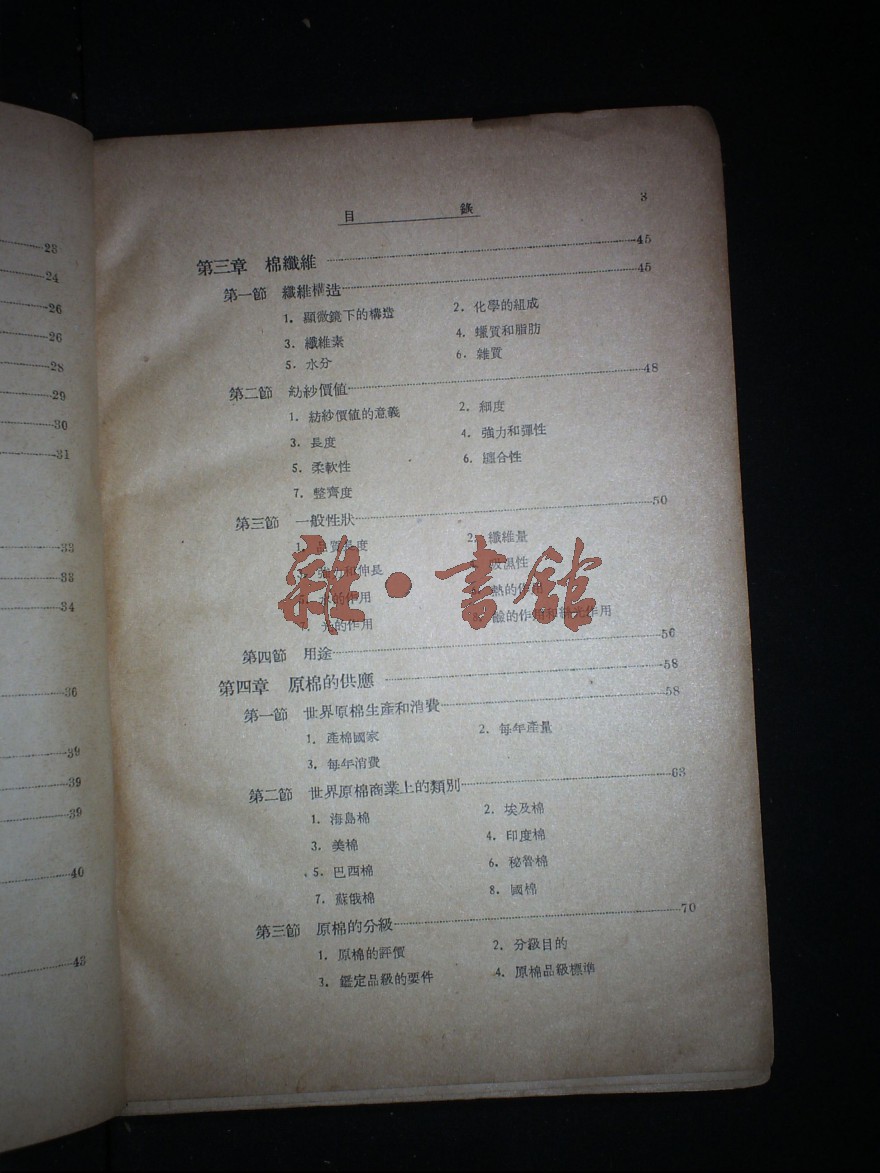 28
24
26
26
28
29
30
31
33
33
34
36
39
39
39
40
43
目 錄 3
第三章 棉纖維 45
第一節 纖維構造 45
1. 顯微鏡下的構造 2. 化學的組成
3. 纖維素 4. 蠟質和脂肪
5. 水分 6. 雜質
第二節 紡紗價值 48
1. 紡紗價值的意義 2. 細度
3. 長度 4. 強力和彈性
5. 柔軟性 6. 纏合性
7. 整齊度
第三節 一般性狀 50
1. 品質長度 2. 纖維量
和伸長 吸濕性
的作用 熱的作用
光的作用 的作用和 作用
雜·書館
第四節 用途 56
第四章 原棉的供應 58
第一節 世界原棉生產和消費 58
1. 產棉國家 2. 每年產量
3. 每年消費
第二節 世界原棉商業上的類別 63
1. 海島棉 2. 埃及棉
3. 美棉 4. 印度棉
5. 巴西棉 6. 秘魯棉
7. 蘇俄棉 8. 國棉
第三節 原棉的分級 70
1. 原棉的評價 2. 分級目的
3. 鑑定品級的要件 4. 原棉品級標準